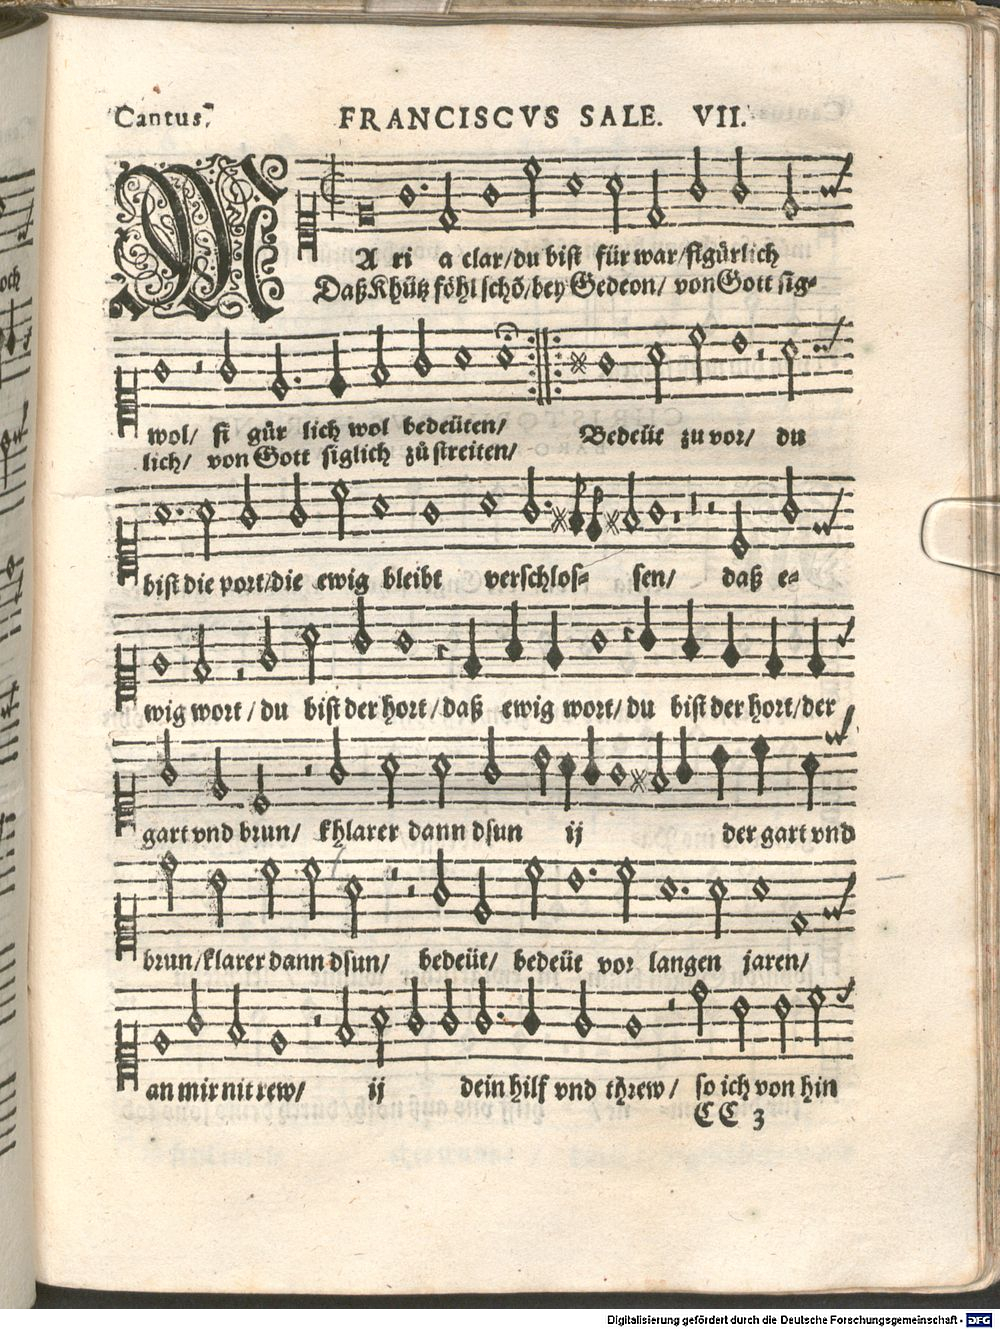 Cantus. FRANCISCVS SALE. VII.
MAri a clar/du bist für war/figürlich
Daß Khütz föhl schö/bey Gedeon/ von Gott sig-
wol/ fi gür lich wol bedeüten/ Bedeüt zu vor/ du
lich/ von Gott siglich zů streiten/
bist die port/die ewig bleibt verschlos- sen/ daß e-
wig wort/du bist der hort/daß ewig wort/du bist der hort/der
gart vnd brun/ khlarer dann dsun ij der gart vnd
brun/klarer dann dsun/ bedeüt/ bedeüt vor langen jaren/
an mir nit rew/ ij dein hilf vnd threw/ so ich von hin
CC 3
och
Digitalisierung gefördert durch die Deutsche Forschungsgemeinschaft - DFG